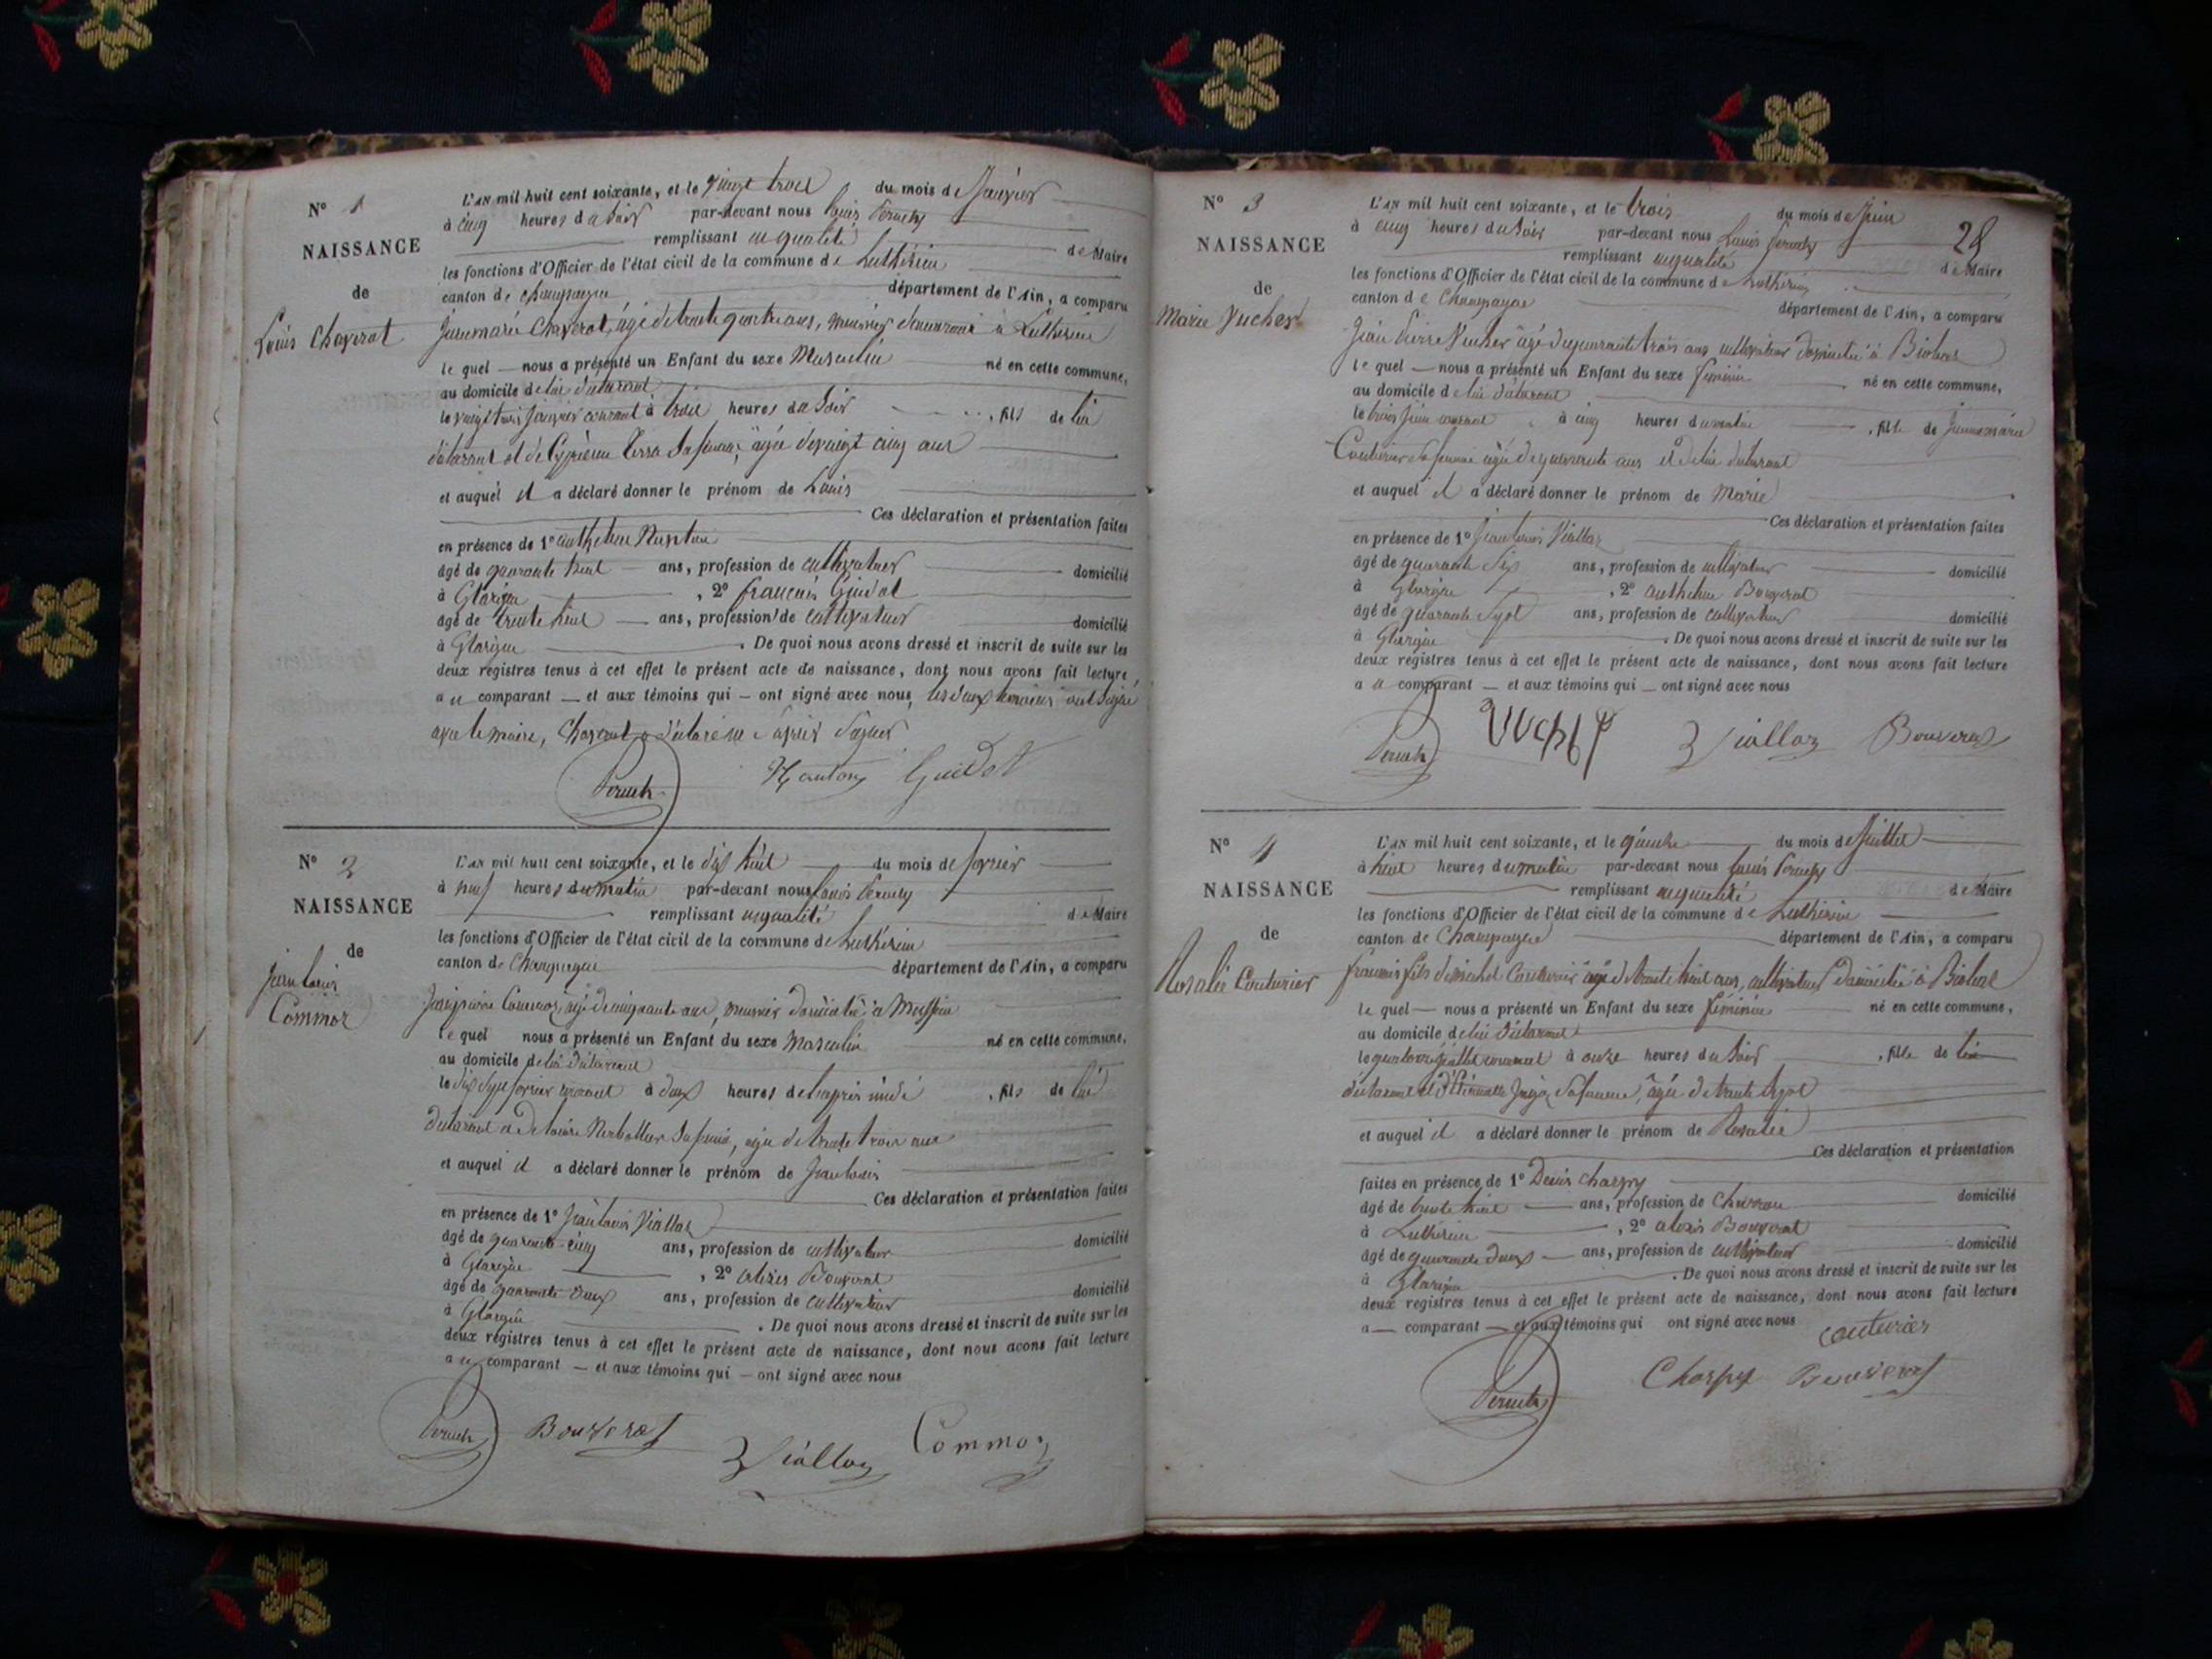 N° 1
NAISSANCE
de
Louis Chaverot
L'AN mil huit cent soixante, et le vingt trois du mois de Janvier
à cinq heures du Soir par-devant nous Louis
remplissant en qualité de Maire
les fonctions d'Officier de l'état civil de la commune de Luthézieu
canton de Champagne département de l'Ain, a comparu
Jeanmarie Chaverot, âgé de trente quatre ans, meunier demeurant à Luthézieu
le quel — nous a présenté un Enfant du sexe Masculin né en cette commune,
au domicile de lui déclarant
le vingt trois Janvier courant à trois heures du Soir , fils de lui
déclarant et de sa femme, âgée de vingt cinq ans
et auquel il a déclaré donner le prénom de Louis
Ces déclaration et présentation faites
en présence de 1° anthelme
âgé de quarante huit ans, profession de cultivateur domicilié
à Glargin , 2° françois Guidot
âgé de trente huit — ans, profession de cultivateur domicilié
à Glargin . De quoi nous avons dressé et inscrit de suite sur les
deux registres tenus à cet effet le présent acte de naissance, dont nous avons fait lecture
au comparant — et aux témoins qui — ont signé avec nous, les deux témoins ont signé
avec le maire, Chaverot a déclaré ne savoir signer
Guidot
N° 2
NAISSANCE
de
jean louis
Commoz
L'AN mil huit cent soixante, et le dix huit du mois de fevrier
à neuf heures du matin par-devant nous Louis
remplissant en qualité de Maire
les fonctions d'Officier de l'état civil de la commune de Luthézieu
canton de Champagne département de l'Ain, a comparu
Commoz, âgé de cinquante ans, meunier domicilié à
le quel nous a présenté un Enfant du sexe Masculin né en cette commune,
au domicile de lui déclarant
le dix sept fevrier courant à deux heures de l'après midi , fils de lui
déclarant et de sa femme, âgée de trente trois ans
et auquel il a déclaré donner le prénom de Jean louis
Ces déclaration et présentation faites
en présence de 1° Jean louis Viallaz
âgé de quarante-cinq ans, profession de cultivateur domicilié
à Glargin , 2° alexis Bouverat
âgé de quarante deux ans, profession de cultivateur domicilié
à Glargin . De quoi nous avons dressé et inscrit de suite sur les
deux registres tenus à cet effet le présent acte de naissance, dont nous avons fait lecture
au comparant — et aux témoins qui — ont signé avec nous
Bouverat Viallaz Commoz
28
N° 3
NAISSANCE
de
Marie Vucher
L'AN mil huit cent soixante, et le trois du mois de Juin
à cinq heures du Soir par-devant nous Louis
remplissant en qualité de Maire
les fonctions d'Officier de l'état civil de la commune de Luthézieu
canton de Champagne département de l'Ain, a comparu
Jean Pierre Vucher âgé de quarante trois ans cultivateur domicilié à
le quel — nous a présenté un Enfant du sexe féminin né en cette commune,
au domicile de lui déclarant
le trois Juin courant à cinq heures du matin , fille de Jeannemarie
Couturier sa femme âgée de quarante ans et de lui déclarant
et auquel il a déclaré donner le prénom de Marie
Ces déclaration et présentation faites
en présence de 1° Jean louis Viallaz
âgé de quarante six ans, profession de cultivateur domicilié
à Glargin , 2° anthelme Bouverat
âgé de quarante sept ans, profession de cultivateur domicilié
à Glargin . De quoi nous avons dressé et inscrit de suite sur les
deux registres tenus à cet effet le présent acte de naissance, dont nous avons fait lecture
au comparant — et aux témoins qui — ont signé avec nous
Viallaz Bouverat
N° 4
NAISSANCE
de
Rosalie Couturier
L'AN mil huit cent soixante, et le quinze du mois de Juillet
à huit heures du matin par-devant nous Louis
remplissant en qualité de Maire
les fonctions d'Officier de l'état civil de la commune de Luthézieu
canton de Champagne département de l'Ain, a comparu
françois fils de michel Couturier âgé de trente huit ans, cultivateur domicilié à
le quel — nous a présenté un Enfant du sexe féminin né en cette commune,
au domicile de lui déclarant
le quatorze Juillet courant à onze heures du Soir , fille de lui
déclarant et d' sa femme, âgée de trente sept
et auquel il a déclaré donner le prénom de Rosalie
Ces déclaration et présentation
faites en présence de 1° Denis Charpy
âgé de trente huit — ans, profession de Charron domicilié
à Luthézieu , 2° alexis Bouverat
âgé de quarante deux — ans, profession de cultivateur domicilié
à Glargin . De quoi nous avons dressé et inscrit de suite sur les
deux registres tenus à cet effet le présent acte de naissance, dont nous avons fait lecture
a — comparant — et aux témoins qui ont signé avec nous
couturier
Charpy Bouverat